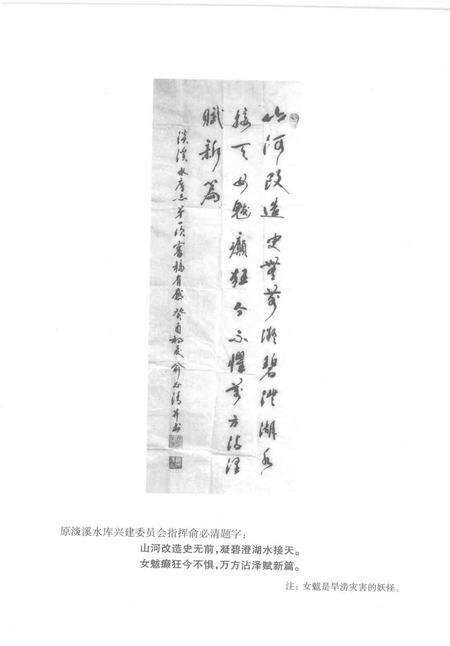 山河改造史無前凝碧澄湖水
接天女魃癲狂今不懼萬方沾澤
賦新篇
淡溪水庫志第一次審稿有感 癸酉初夏 俞必清并書
原淡溪水库兴建委员会指挥俞必清题字:
山河改造史无前,凝碧澄湖水接天。
女魃癫狂今不惧,万方沾泽赋新篇。
注:女魃是旱涝灾害的妖怪。